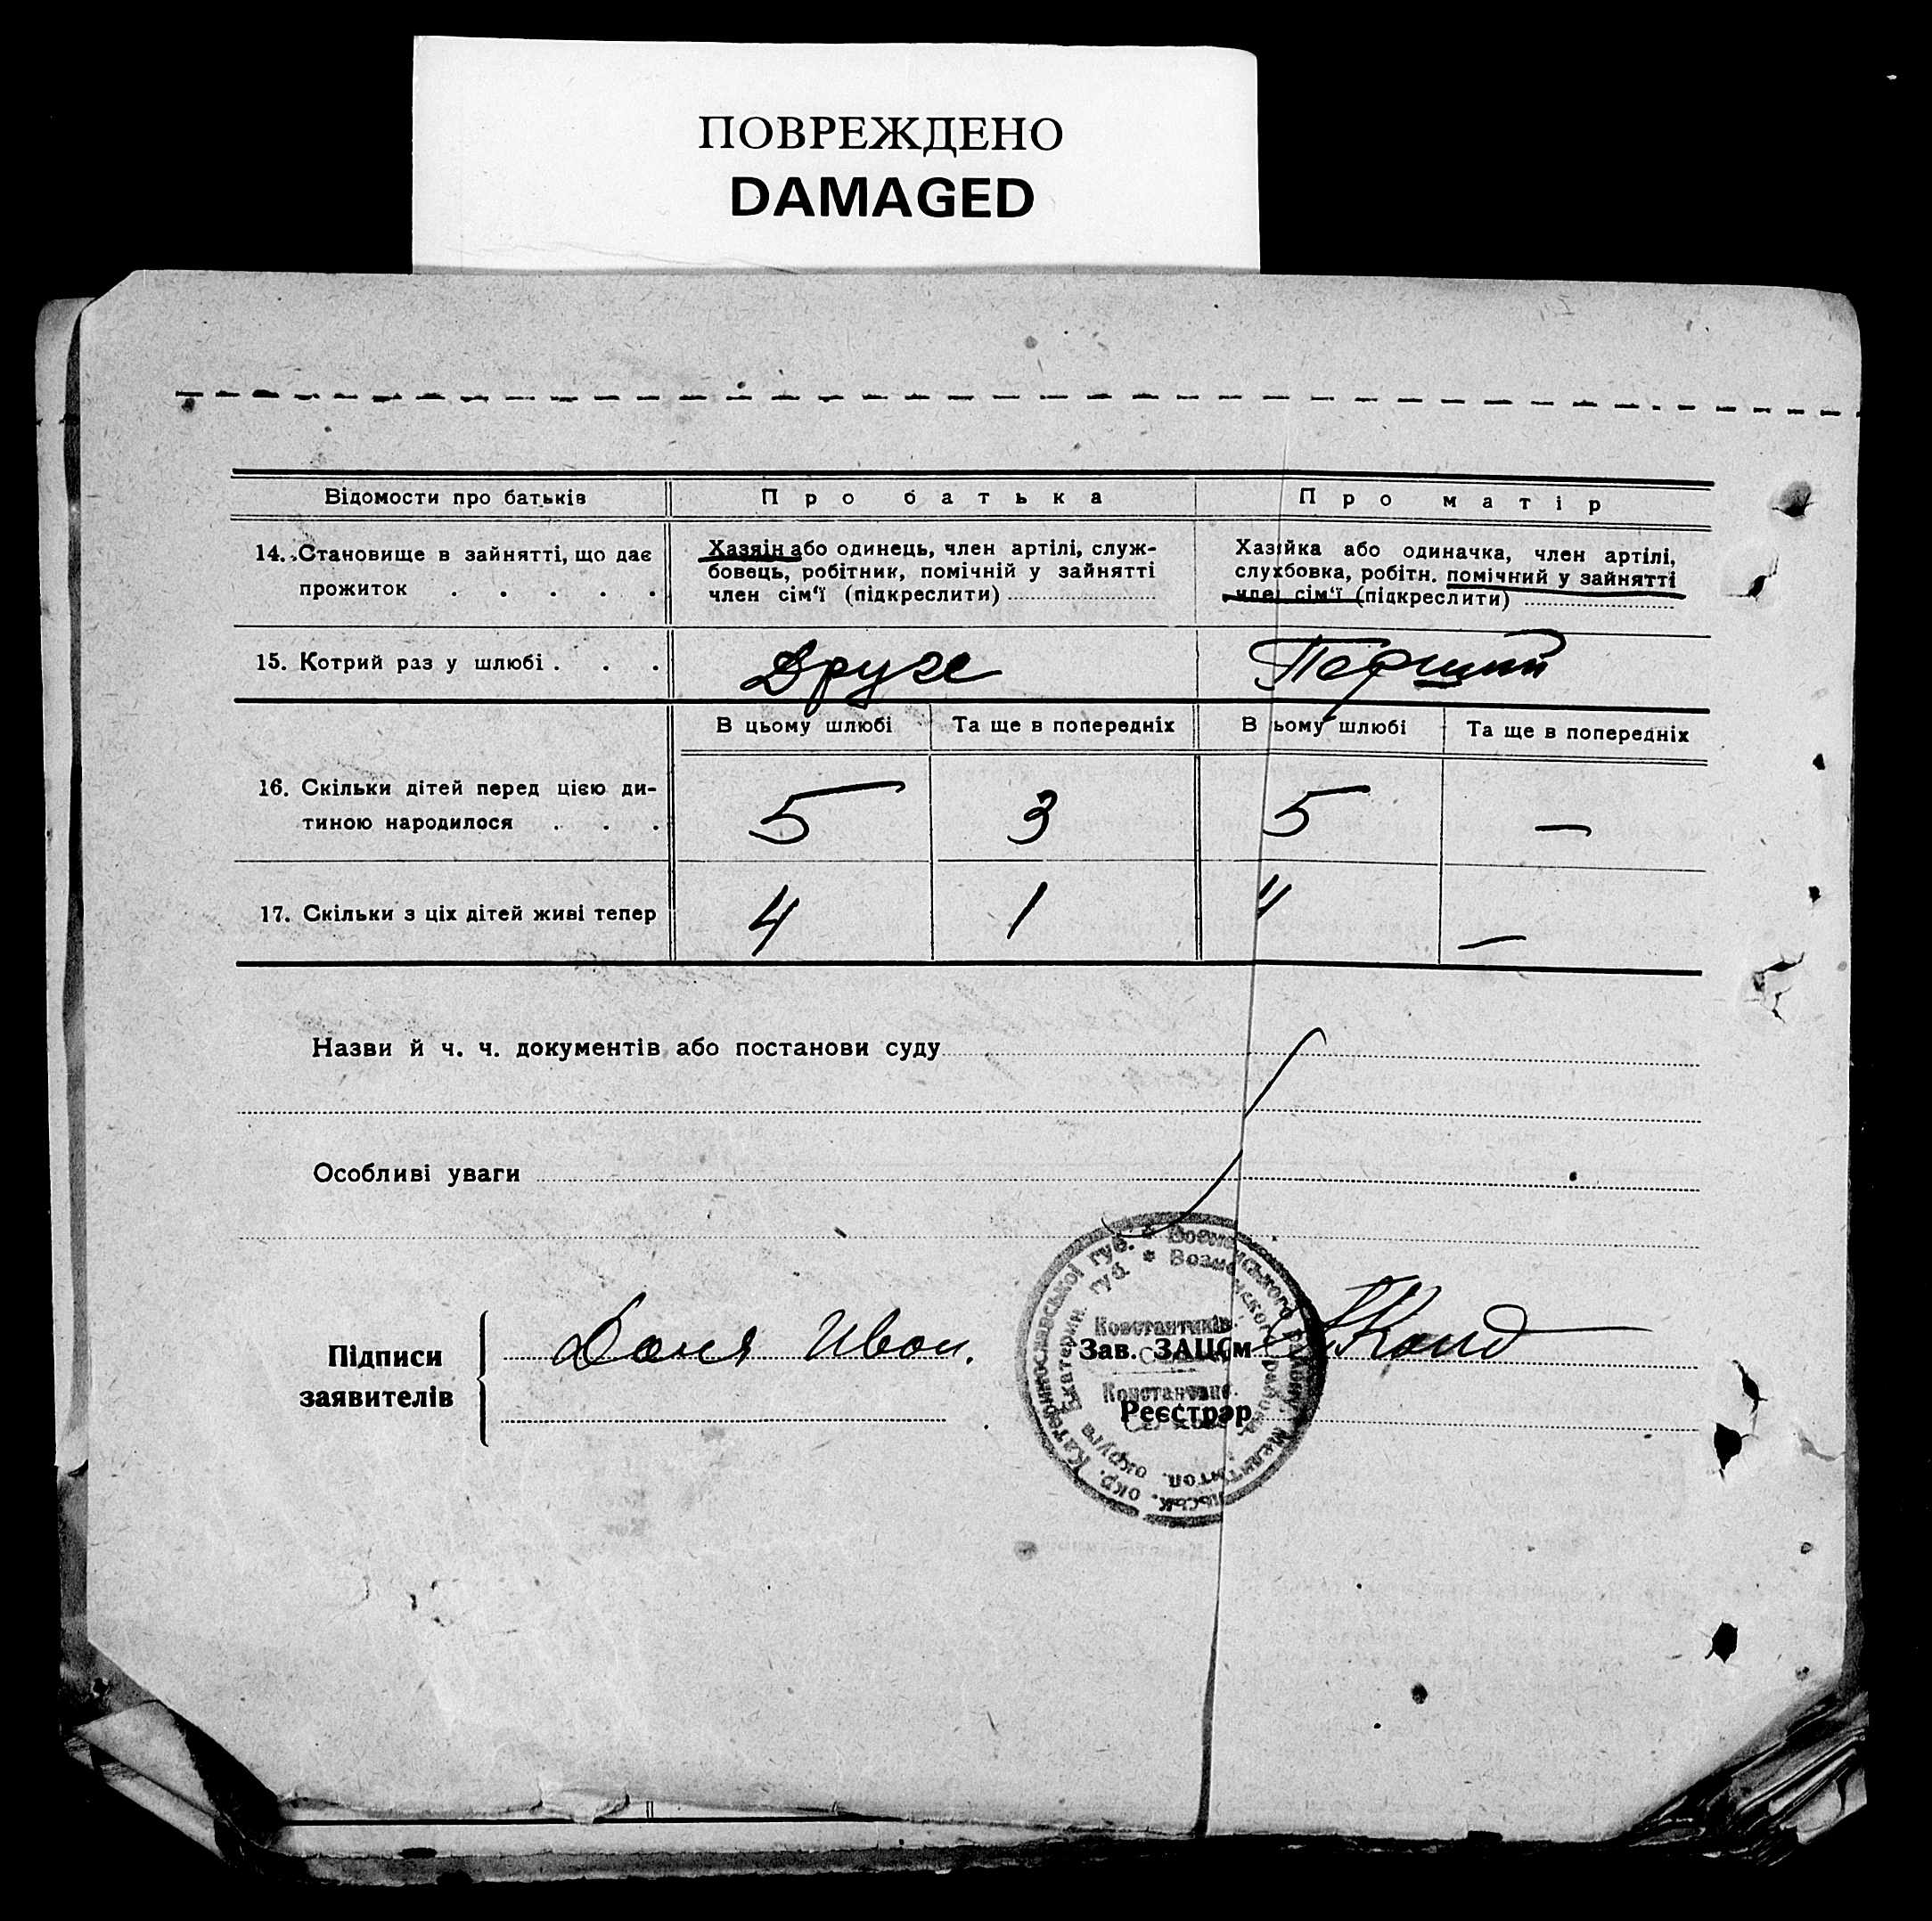 ПОВРЕЖДЕНО
DAMAGED
Відомости про батьків
Про батька
Про матір
14. Становище в зайнятті, що дає
прожиток . . . . .
Хазяїн або одинець, член артілі, служ-
бовець, робітник, помічній у зайнятті
член сім'ї (підкреслити)
Хазяйка або одиначка, член артілі,
службовка, робітн. помічний у зайнятті
член сім'ї (підкреслити)
15. Котрий раз у шлюбі . . .
Друге
Перший
В цьому шлюбі
Та ще в попередніх
В ьому шлюбі
Та ще в попередніх
16. Скільки дітей перед цією ди-
тиною народилося . . .
5
3
5
—
17. Скільки з ціх дітей живі тепер
4
1
4
—
Назви й ч. ч. документів або постанови суду
Особливі уваги
Підписи
заявителів
Зав. ЗАЦСм
Реєстрар
Катеринославської губ. * Вознесенського району Мелітопільськ. окр.
Екатерин. губ. * Вознесенского района Мелитоп. округа
Константинів.
Константинс.